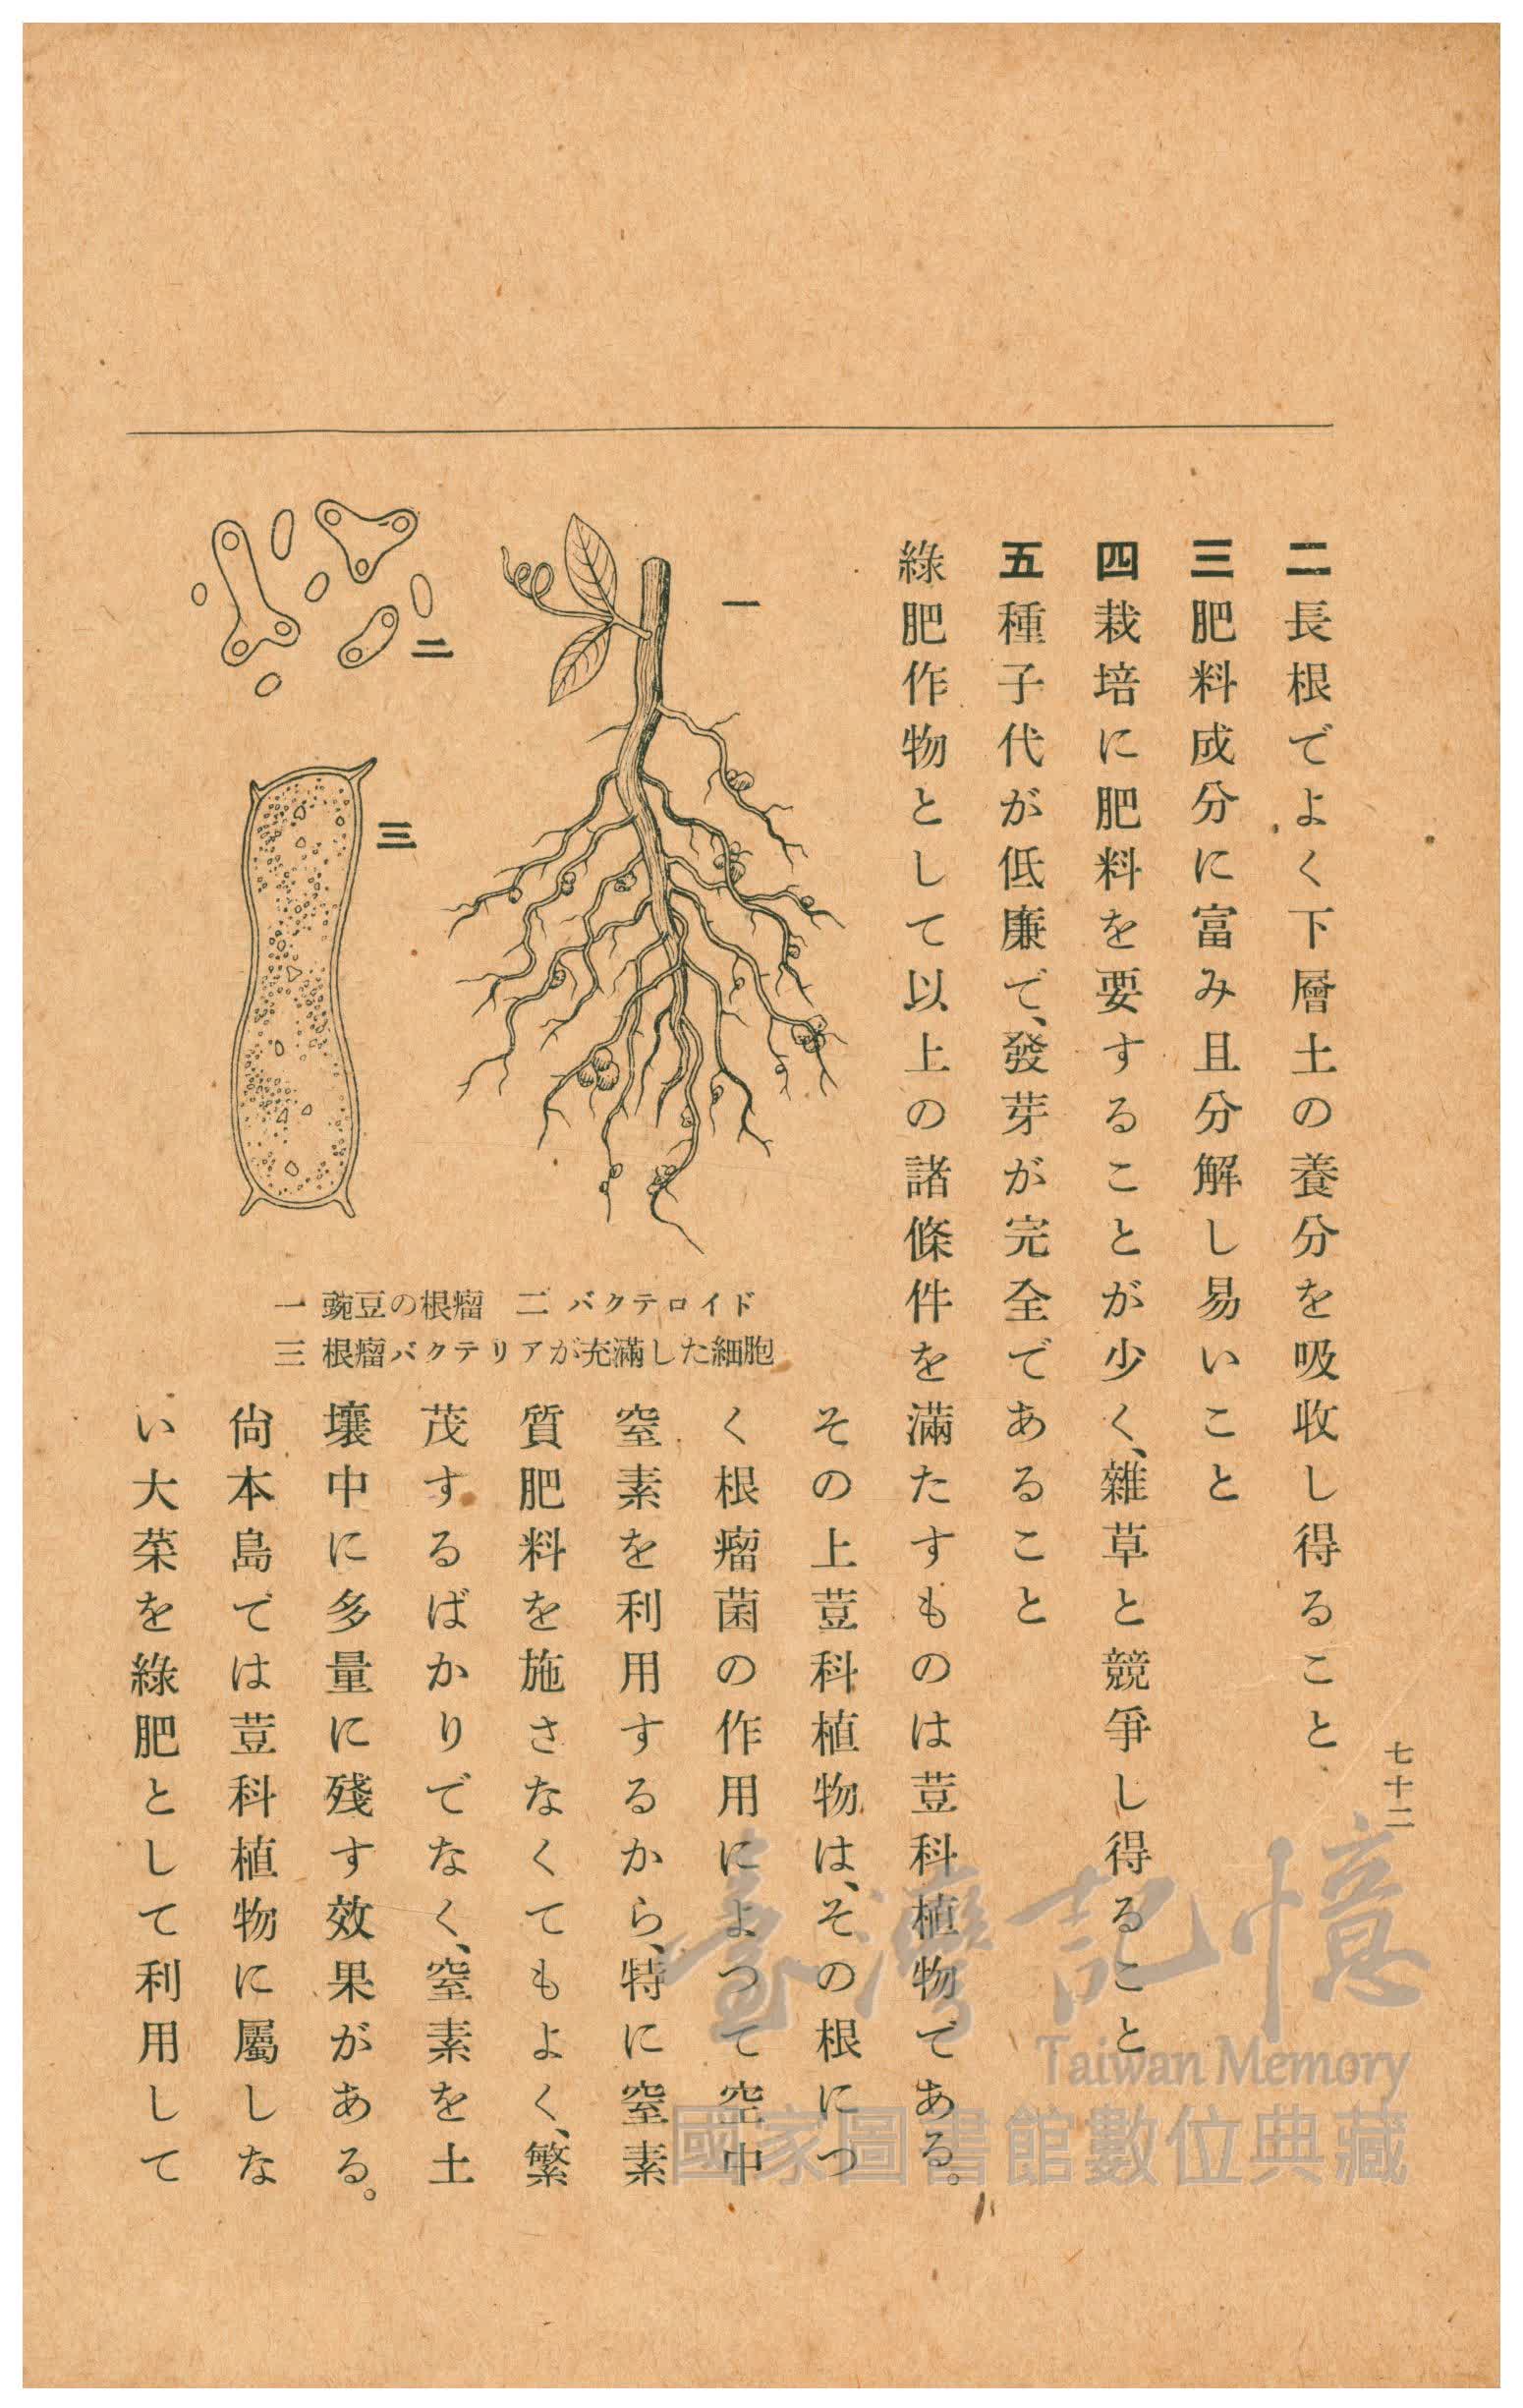 七十二
二 長根でよく下層土の養分を吸收し得ること
三 肥料成分に富み且分解し易いこと
四 栽培に肥料を要することが少く、雜草と競爭し得ること
五 種子代が低廉で、發芽が完全であること
綠肥作物として以上の諸條件を滿たすものは荳科植物である。
その上荳科植物は、その根につ
く根瘤菌の作用によつて空中
窒素を利用するから、特に窒素
質肥料を施さなくてもよく、繁
茂するばかりでなく、窒素を土
壤中に多量に殘す效果がある。
尙本島では荳科植物に屬しな
い大菜を綠肥として利用して
一
二
三
一 豌豆の根瘤 二 バクテロイド
三 根瘤バクテリアが充滿した細胞
臺灣記憶
Taiwan Memory
國家圖書館數位典藏